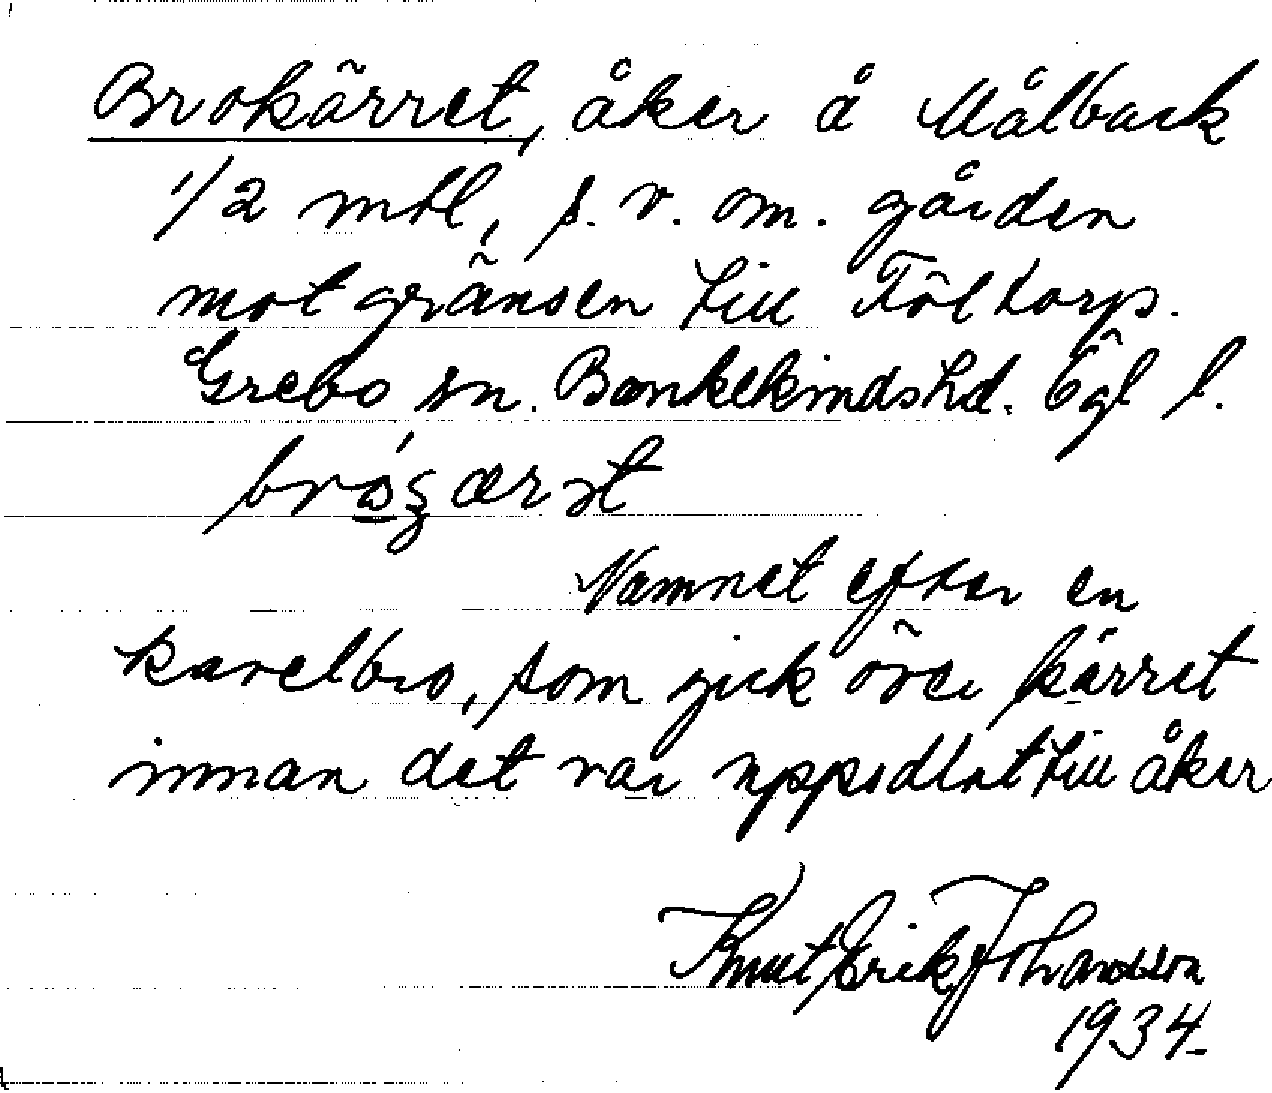 Brokärret, åker å Målback
1/2 mtl, s. v. om. gården
mot gränsen till Föltorp.
Grebo sn. Bankekindshd. Ögl l.
Namnet efter en
kavelbro, som gick över kärret
innan det var uppodlat till åker
Knut Erik Johansson
1934.